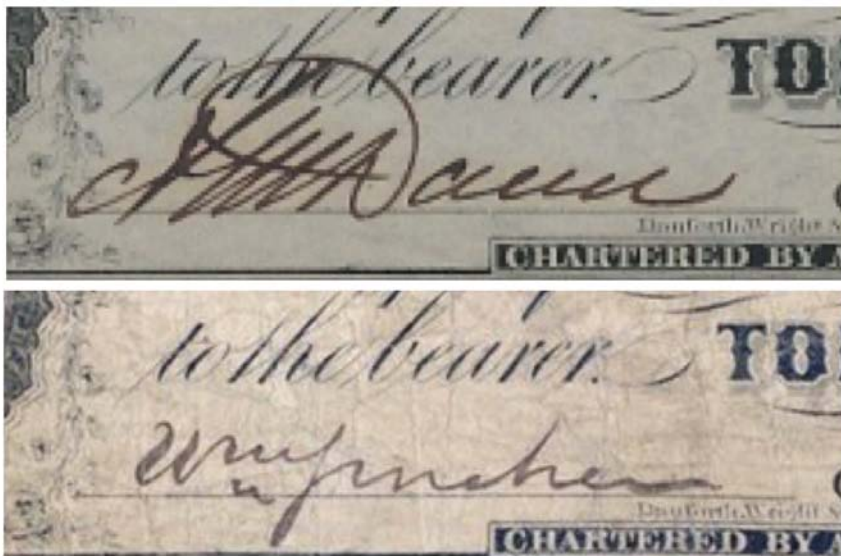 to the bearer. TO
Danforth, Wright &
CHARTERED BY A
to the bearer. TO
Danforth, Wright &
CHARTERED BY A